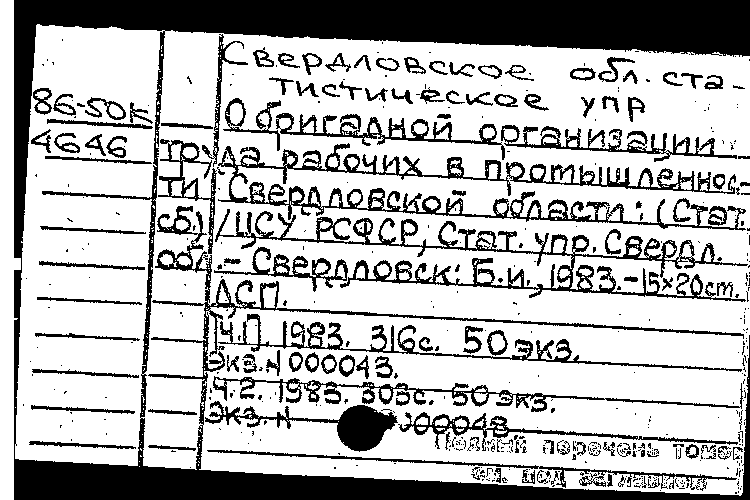 Свердловское обл. ста-
тистическое упр
86-50к
О бригадной организации
4646
труда рабочих в промышленнос-
ти Свердловской области: (Стат.
сб.) / ЦСУ РСФСР, Стат. упр. Свердл.
обл. - Свердловск: Б.и., 1983. - 15×20см.
ДСП.
Ч.1. 1983. 316с. 50 экз.
Экз. N 000043.
Ч.2. 1983. 303с. 50 экз.
Экз. N 000048
Полный перечень томов
см. под заглавием